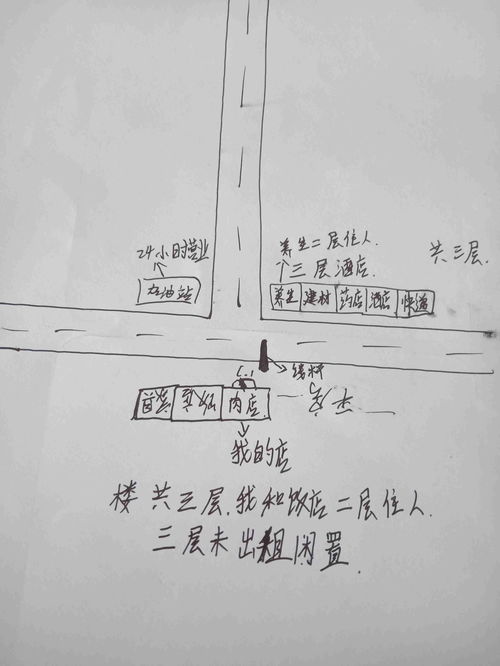 24小时营业
加油站
养生二层住人.
三层酒店.
共三层.
养生 建材 药店 酒店 快递
线杆
肉店
平房
我的店
楼共三层.我和饭店二层住人.
三层未出租闲置.